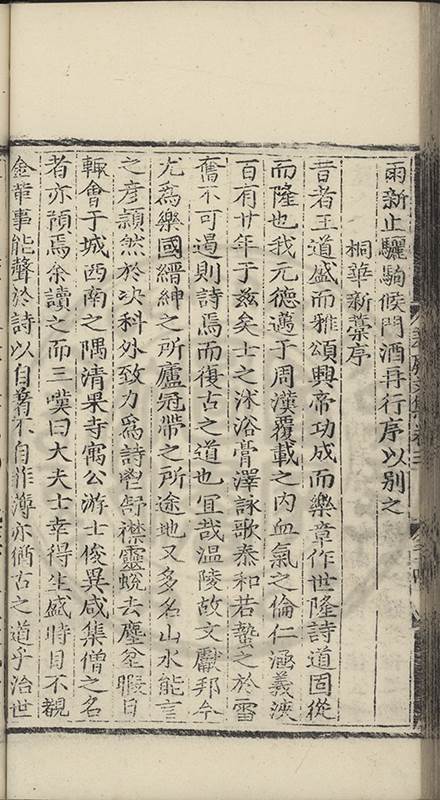 雨新止驪駒候門酒再行序以别之
桐華新藁序
昔者王道盛而雅頌興帝功成而樂章作世隆詩道固從
而隆也我元德邁于周漢覆載之内血氣之倫仁涵義浹
百有廿年于兹矣士之沐浴膏澤詠歌泰和若蟄之於雷
奮不可遏則詩焉而復古之道也宜哉温陵故文獻邦今
尤爲樂國縉紳之所廬冠帶之所途地又多名山水能言
之彦頴然於决科外致力爲詩懽舒襟靈蛻去塵坌暇日
輙會于城西南之隅清果寺寓公游士俊異咸集僧之名
者亦預焉余讀之而三嘆曰大夫士幸得生盛時目不覩
金革事能聲於詩以自著不自菲薄亦猶古之道乎治世